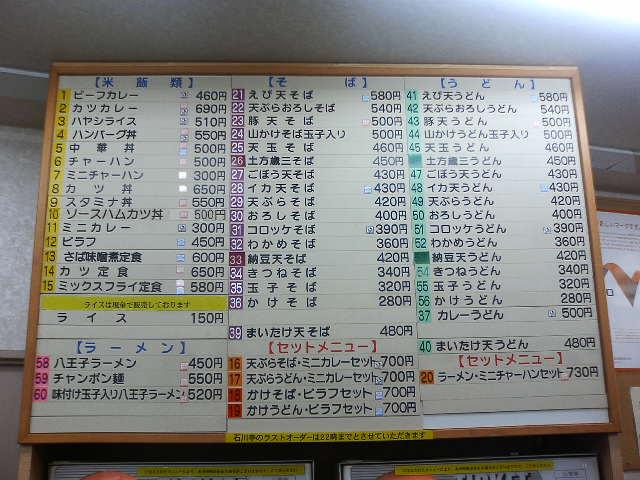 【米飯類】
1 ビーフカレー 460円
2 カツカレー 690円
3 ハヤシライス 510円
4 ハンバーグ丼 550円
5 中華丼 500円
6 チャーハン 500円
7 ミニチャーハン 300円
8 カツ丼 650円
9 スタミナ丼 550円
10 ソースハムカツ丼 500円
11 ミニカレー 300円
12 ピラフ 450円
13 さば味噌煮定食 600円
14 カツ定食 650円
15 ミックスフライ定食 580円
ライスは現金で販売しております
ライス 150円
【ラーメン】
58 八王子ラーメン 450円
59 チャンポン麺 550円
60 味付け玉子入り八王子ラーメン 520円
【そば】
21 えび天そば 580円
22 天ぷらおろしそば 540円
23 豚天そば 500円
24 山かけそば玉子入り 500円
25 天玉そば 460円
26 土方歳三そば 450円
27 ごぼう天そば 430円
28 イカ天そば 430円
29 天ぷらそば 420円
30 おろしそば 400円
31 コロッケそば 390円
32 わかめそば 360円
33 納豆天そば 420円
34 きつねそば 340円
35 玉子そば 320円
36 かけそば 280円
39 まいたけ天そば 480円
【セットメニュー】
16 天ぷらそば・ミニカレーセット 700円
17 天ぷらうどん・ミニカレーセット 700円
18 かけそば・ピラフセット 700円
19 かけうどん・ピラフセット 700円
【うどん】
41 えび天うどん 580円
42 天ぷらおろしうどん 540円
43 豚天うどん 500円
44 山かけうどん玉子入り 500円
45 天玉うどん 460円
土方歳三うどん 450円
47 ごぼう天うどん 430円
48 イカ天うどん 430円
49 天ぷらうどん 420円
50 おろしうどん 400円
51 コロッケうどん 390円
52 わかめうどん 360円
納豆天うどん 420円
54 きつねうどん 340円
55 玉子うどん 320円
56 かけうどん 280円
37 カレーうどん 500円
40 まいたけ天うどん 480円
【セットメニュー】
20 ラーメン・ミニチャーハンセット 730円
石川亭のラストオーダーは22時までとさせていただきます